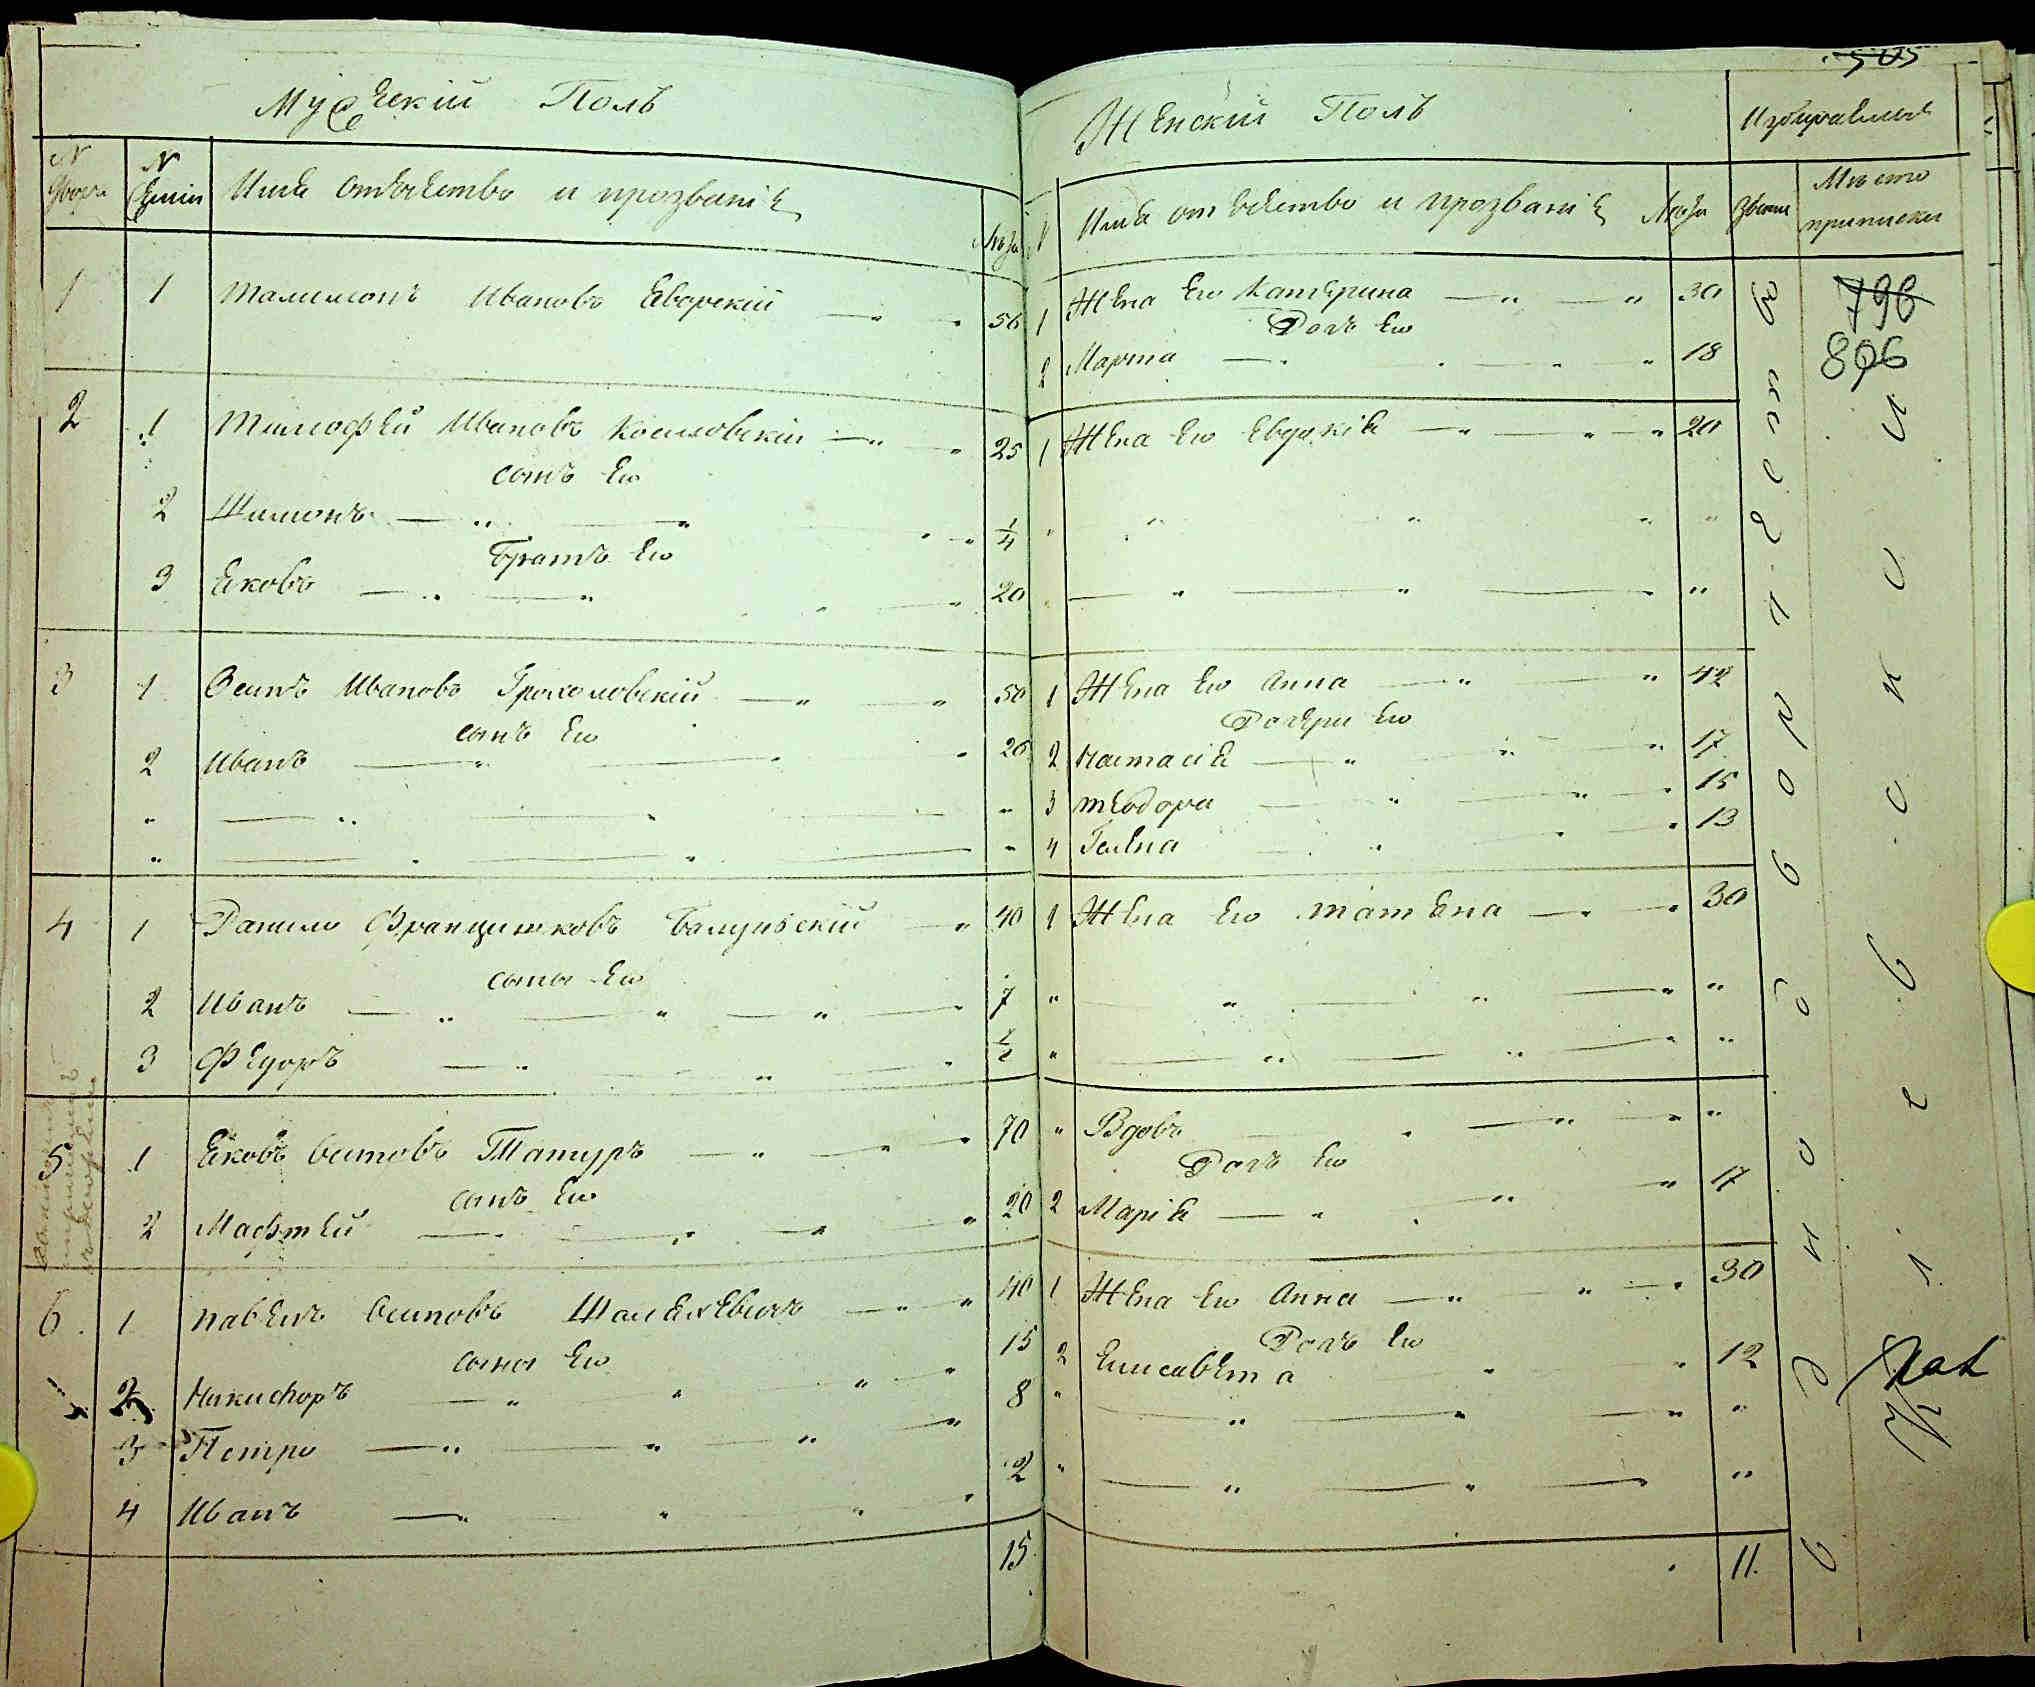 Мужескій Полъ
N двора
N семіи
Имя отъчество и прозваніе
Лѣта
1 1 Талимонъ Ивановъ Яворскій 56
2 1 Тимофѣй Ивановъ Косиловскій 25
сынъ Его
2 Шимонъ 1/4
Братъ Его
3 Яковъ 20
3 1 Осипъ Ивановъ Грохоловскій 50
сынъ Его
2 Иванъ 20
4 1 Данило Францишковъ 40
сыны Его
2 Иванъ 7
3 Федоръ 1/2
5 1 Яковъ Осиповъ Татуръ 70
сынъ Его
2 Мафтей 20
6 1 Павелъ Осиповъ 40
сыны Его 15
2 Никифоръ 8
3 Петро
4 Иванъ 2
15
505
Женскій Полъ
N Имя отъчество и прозваніе Лѣта
Званіе
Мѣсто приписки
1 Жена Его Катерина 30
Дочь Его
2 Марта 18
796
806
1 Жена Его Евдокія 20
1 Жена Его Анна 42
Дочери Его
2 Настасія 17
3 Теодора 15
4 Гелена 13
1 Жена Его Татьяна 30
Вдовъ
Дочь Его
2 Марія 17
1 Жена Его Анна 30
Дочь Его
2 Елисавета 12
11